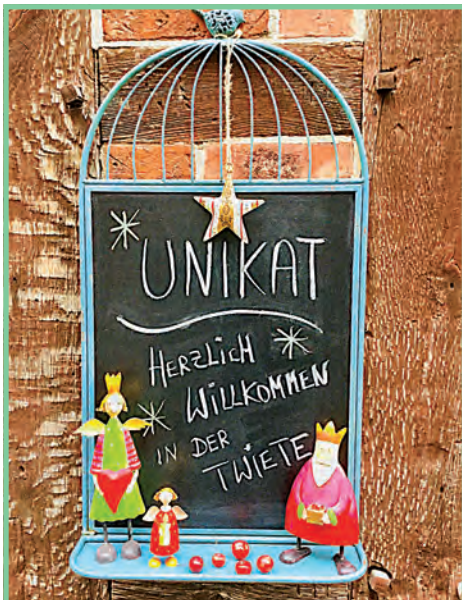 UNIKAT
HERZLICH
WILLKOMMEN
IN DER
TWIETE